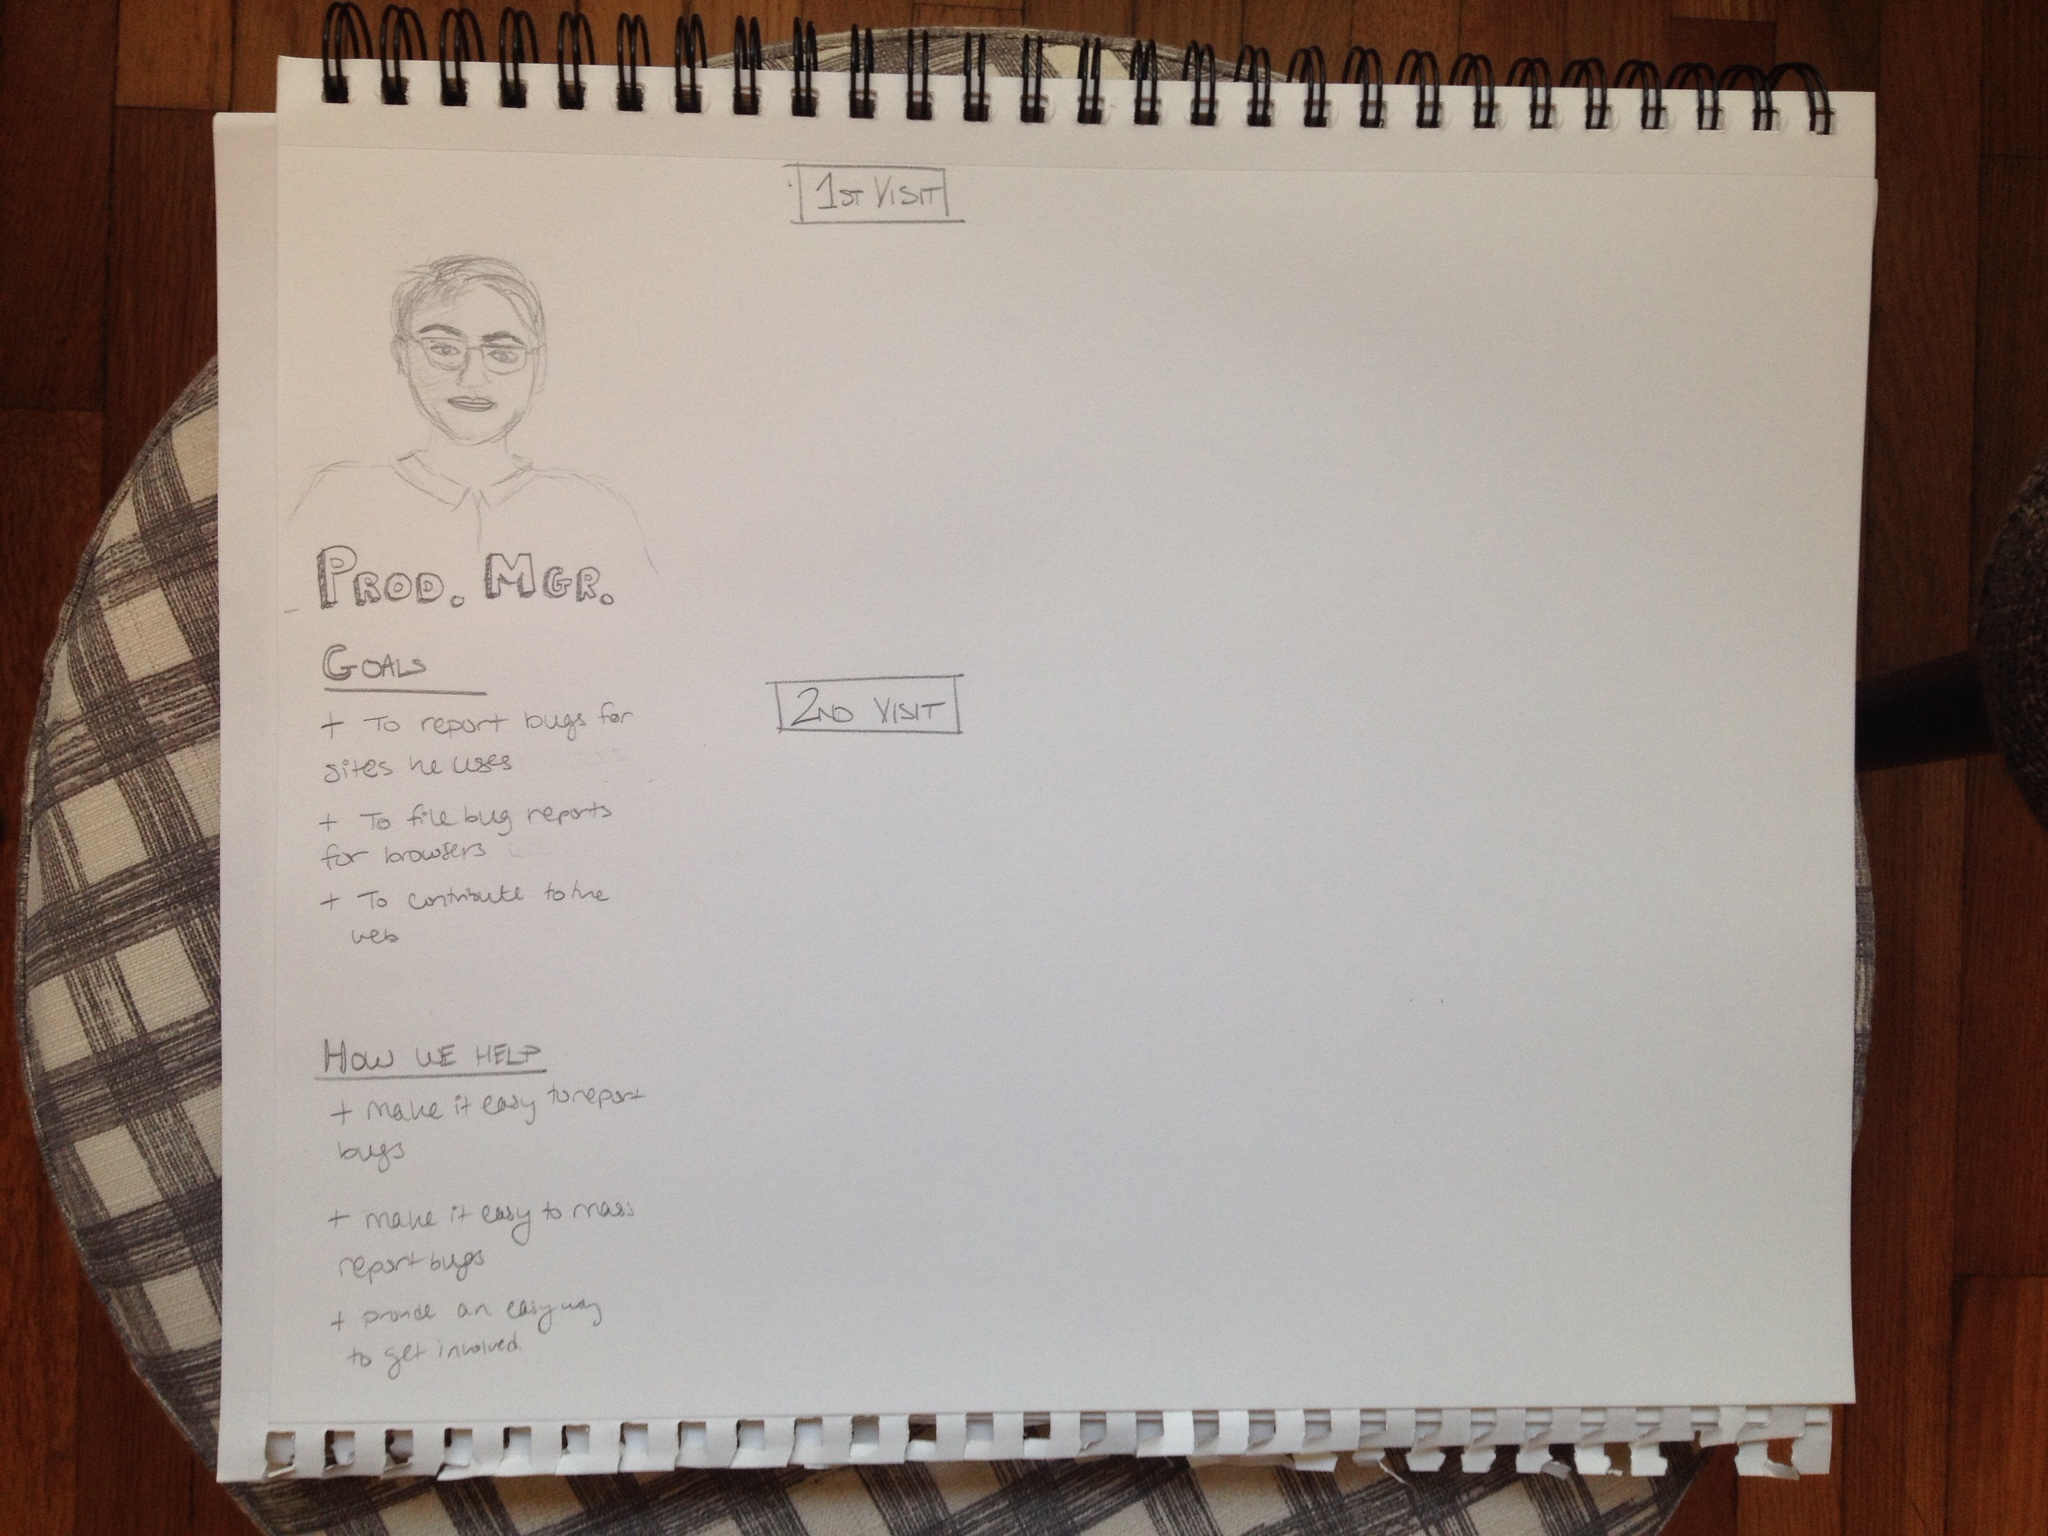 1ST VISIT
PROD. MGR.
GOALS
+ To report bugs for
sites he uses
+ To file bug reports
for browsers
+ To contribute to the
web
HOW WE HELP
+ make it easy to report
bugs
+ make it easy to mass
report bugs
+ provide an easy way
to get involved.
2ND VISIT